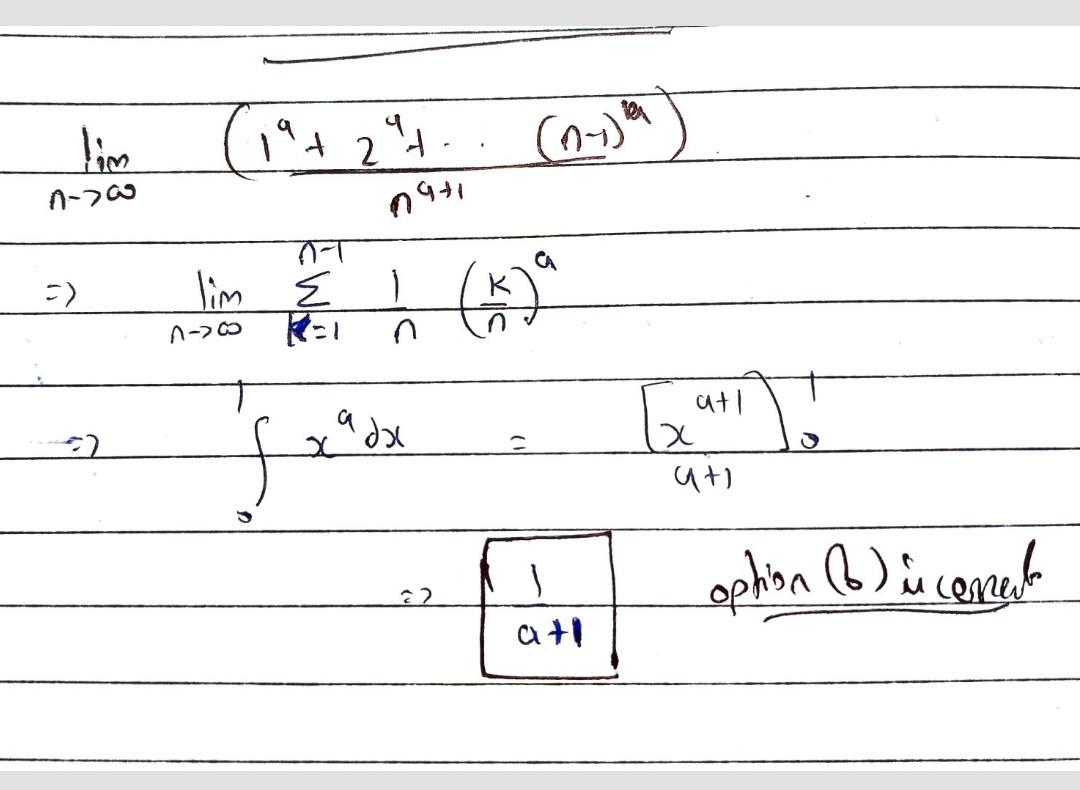 lim n->∞ (1^a + 2^a + .. (n-1)^a) / n^(a+1)
=> lim n->∞ Σ k=1 n-1 1/n (k/n)^a
=> ∫ 0 1 x^a dx = [x^(a+1) / a+1] 0 1
=> 1/a+1 option (b) is correct